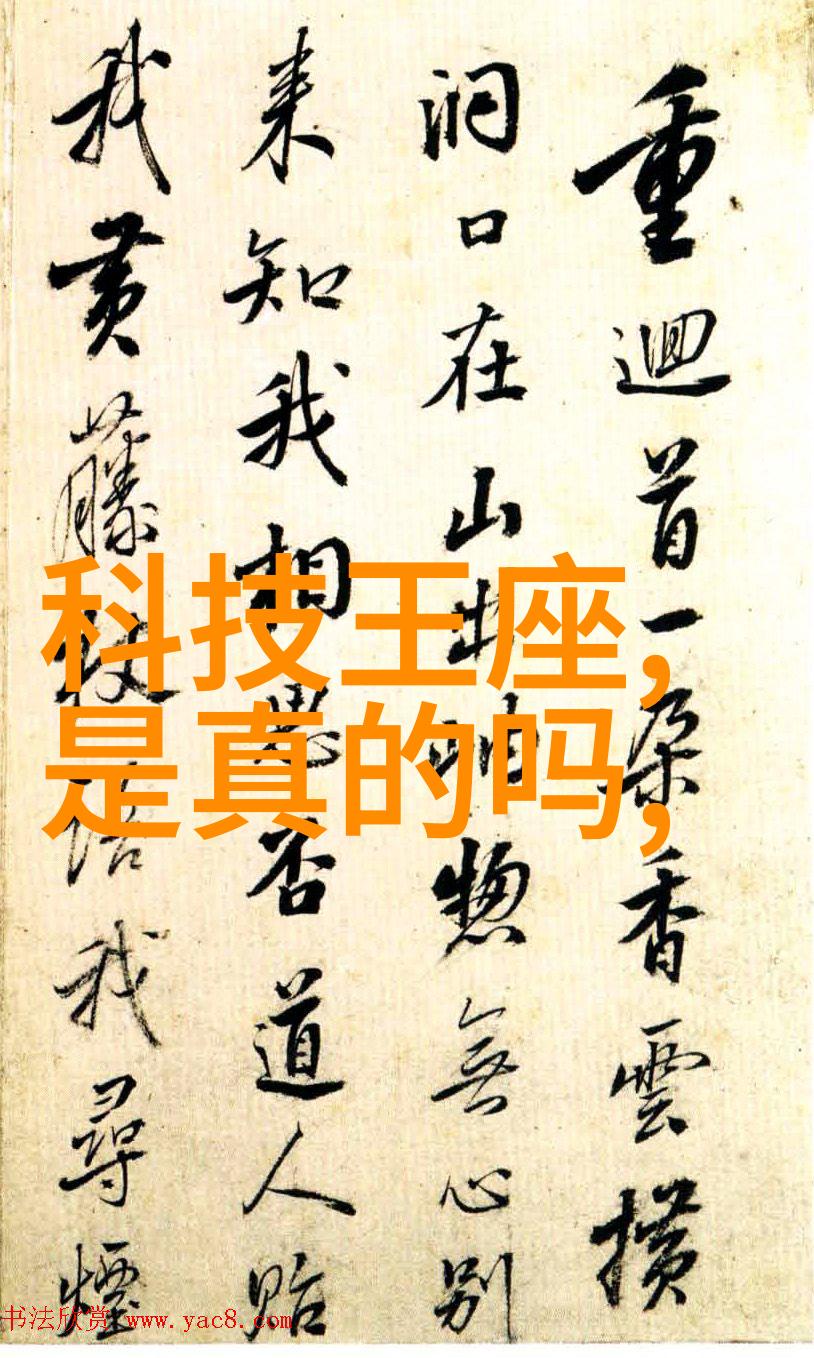 重迴首一朵香雲横
洞口在山出岫惣無心别
来知我相思否道人貽
我黄藤杖陪我尋煙
科技王座,
是真的吗,
书法欣赏 www.yac8.com